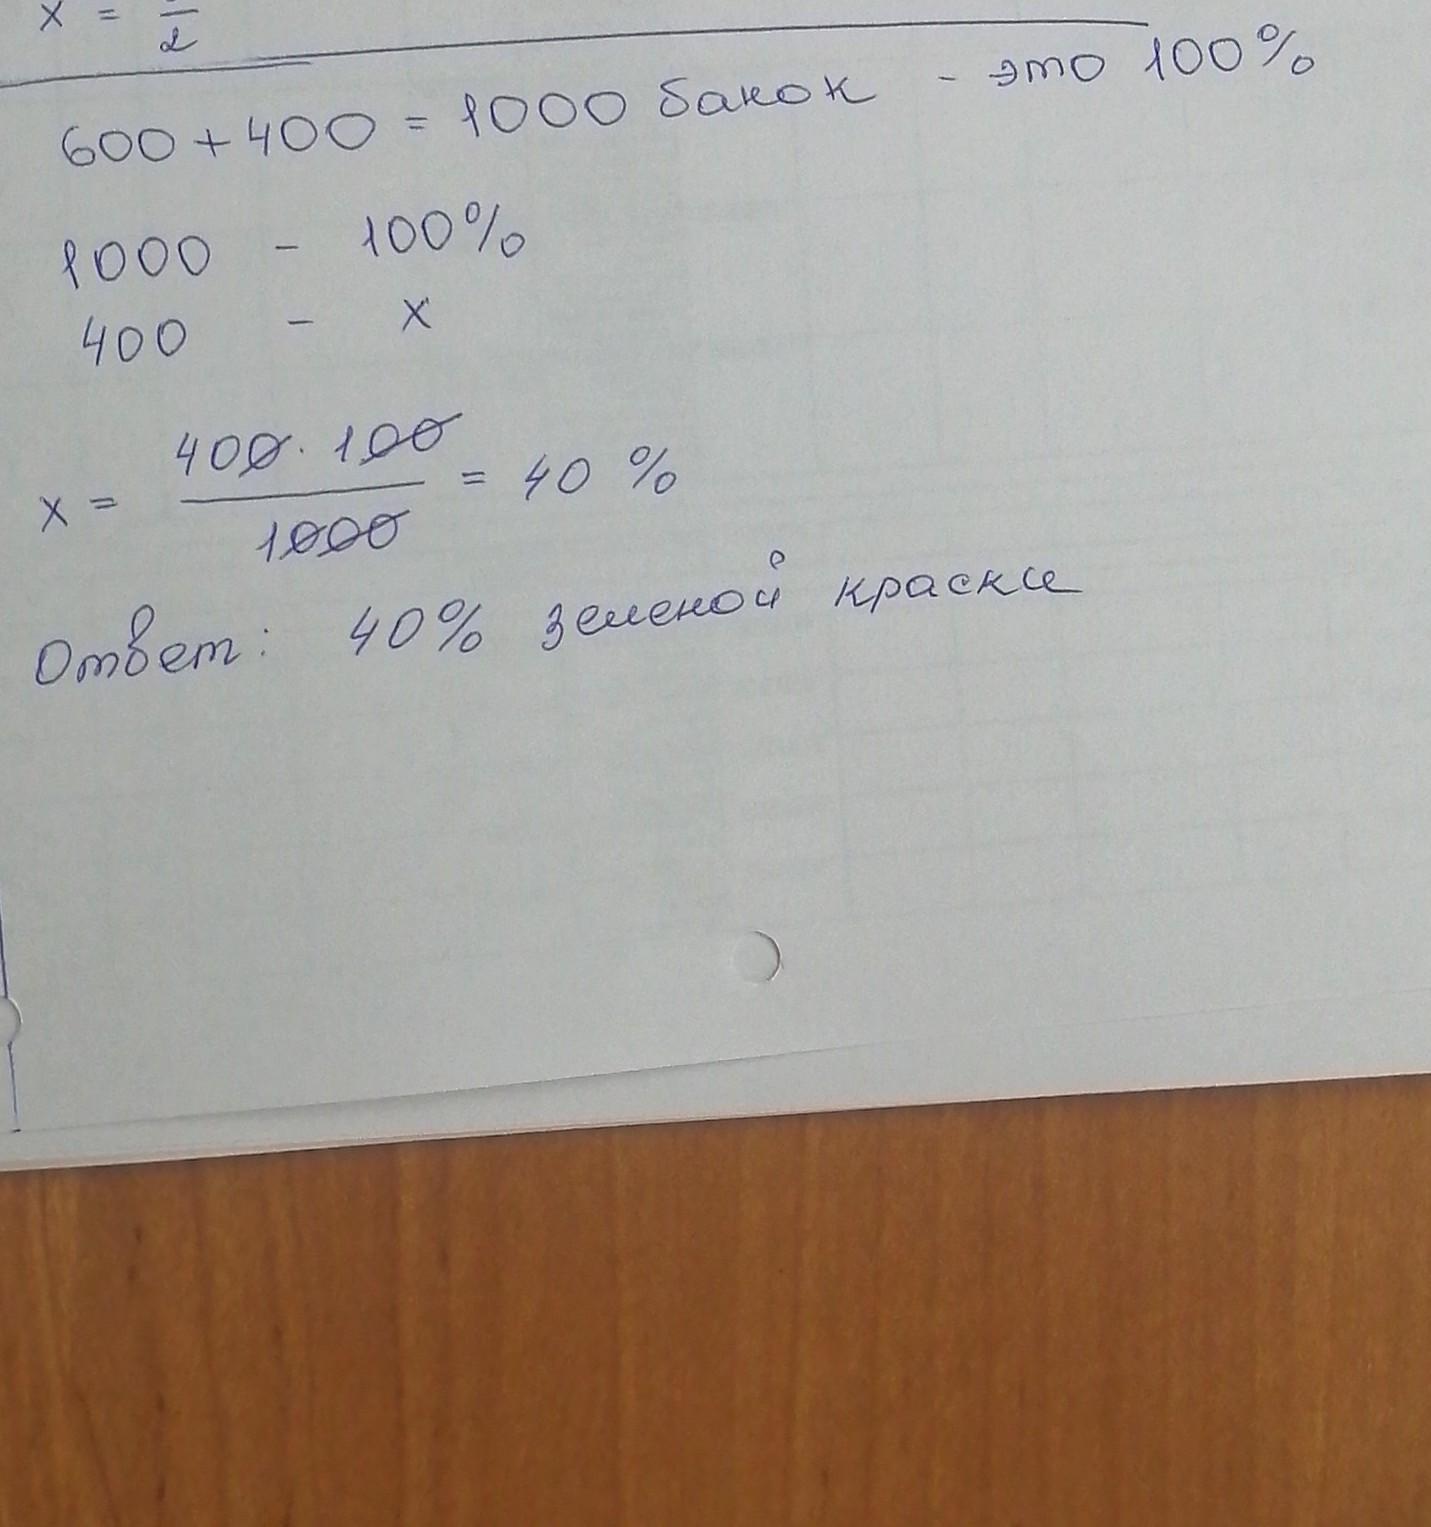 x = — 2
600 + 400 = 1000 банок - это 100%
1000 - 100%
400 - x
x = 400 · 100 / 1000 = 40 %
Ответ: 40% зеленой краски